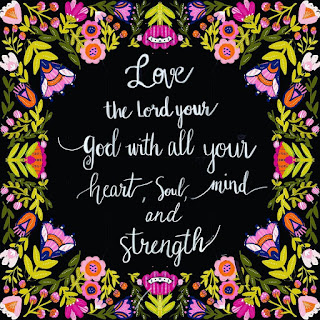 Love
the Lord your
God with all your
heart, Soul, mind
and
strength